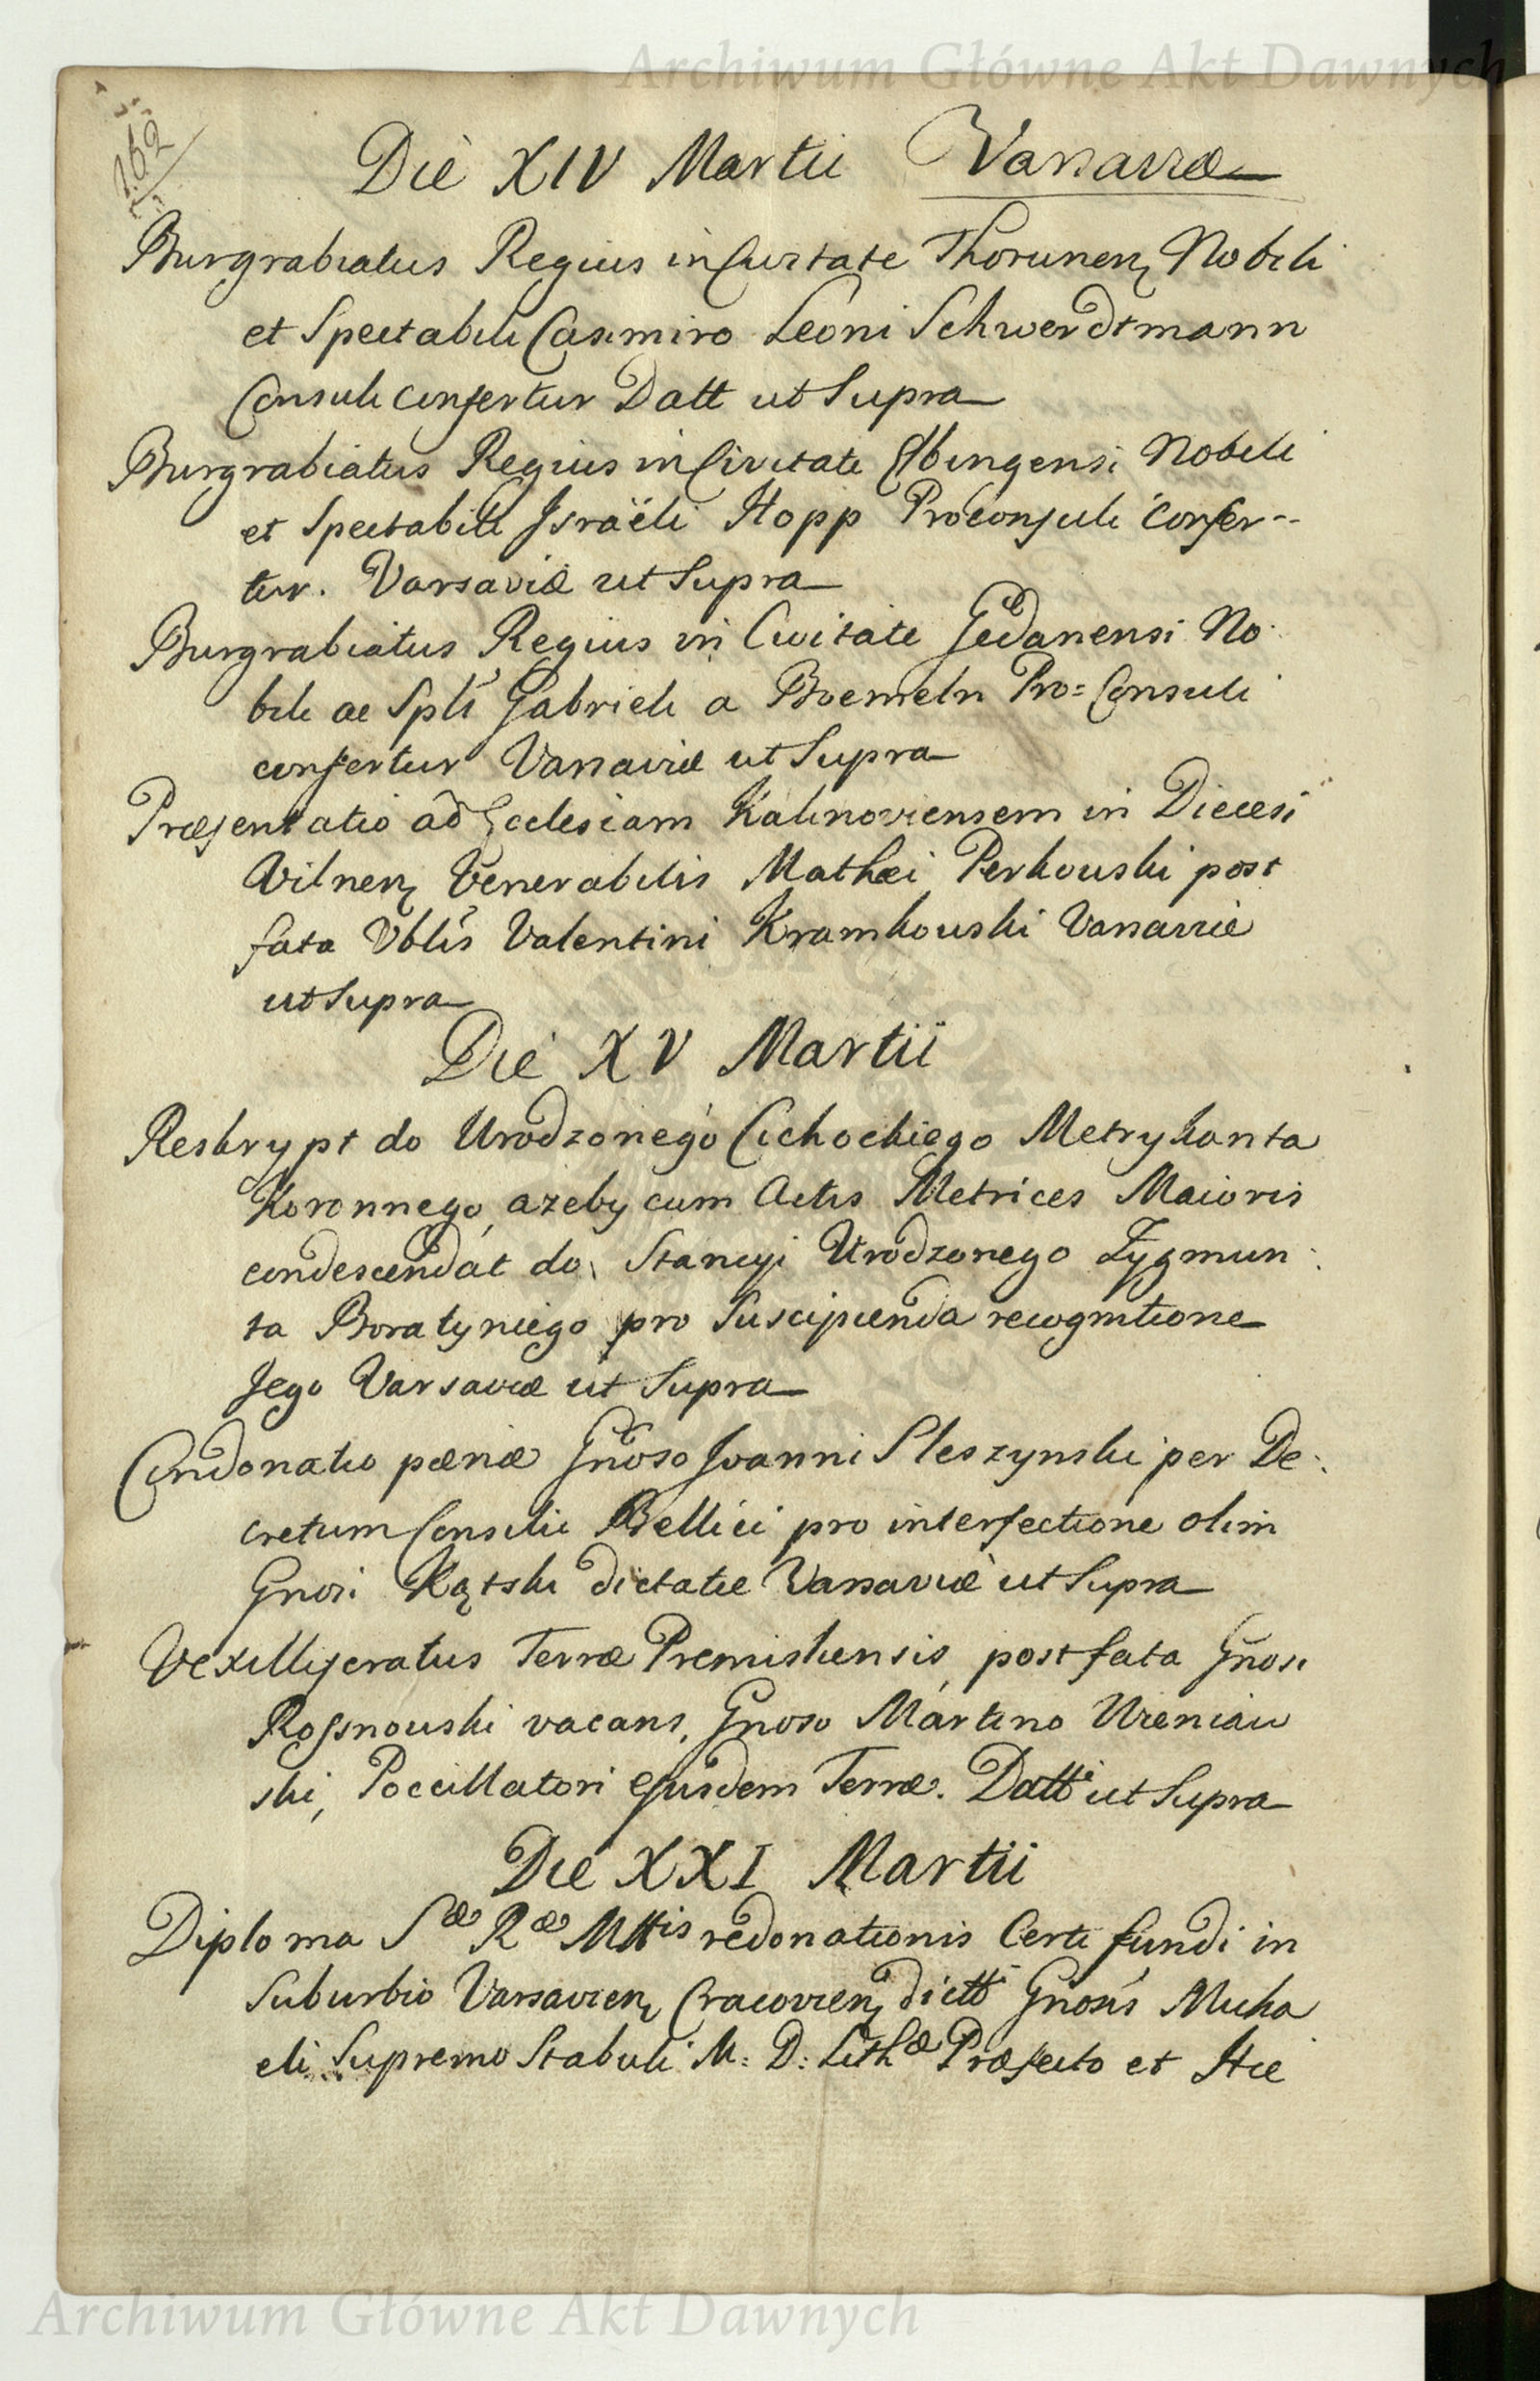 Archiwum Główne Akt Dawnych
262
Die XIV Martii Varsaviæ
Burgrabiatus Regius in Civitate Thorunen, Nobili
et Spectabili Casimiro Leoni Schwerdtmann
Consuli confertur Datt ut Supra
Burgrabiatus Regius in Civitate Elbingensi Nobili
et Spectabili Israëli Hopp Proconsuli confer--
tur. Varsaviæ ut Supra
Burgrabiatus Regius in Civitate Gedanensi No-
bili ac Spli Gabrieli a Boemeln Pro=Consuli
confertur Varsaviæ ut Supra
Præsentatio ad Ecclesiam Kalinoviensem in Diecesi
Vilnen, Venerabilis Mathæi Perkouski post
fata Vblis Valentini Kramkouski Varsaviæ
ut Supra
Die XV Martii
Reskrypt do Urodzonego Cichockiego Metrykanta
Koronnego, azeby cum Actis Metrices Maioris
condescendat do Stancyi Urodzonego Zygmun-
ta Boratyniego pro Suscipienda recognitione
Jego Varsaviæ ut Supra
Condonatio pœnæ Gnoso Joanni Sleszynski per De-
cretum Consilii Bellici pro interfectione olim
Gnosi Kątski dictatæ Varsaviæ ut Supra
Vexilliferatus Terræ Premisliensis, post fata Gnosi
Rossnouski vacans, Gnoso Martino Ureniaw
ski, Poccillatori Ejusdem Terræ. Datt ut Supra
Die XXI Martii
Diploma Sæ Ræ Mttis redonationis Certi fundi in
Suburbio Varsavien, Cracovien, dictt Gnosis Micha
eli Supremo Stabuli M: D: Lithæ Præfecto et Hie
Archiwum Główne Akt Dawnych